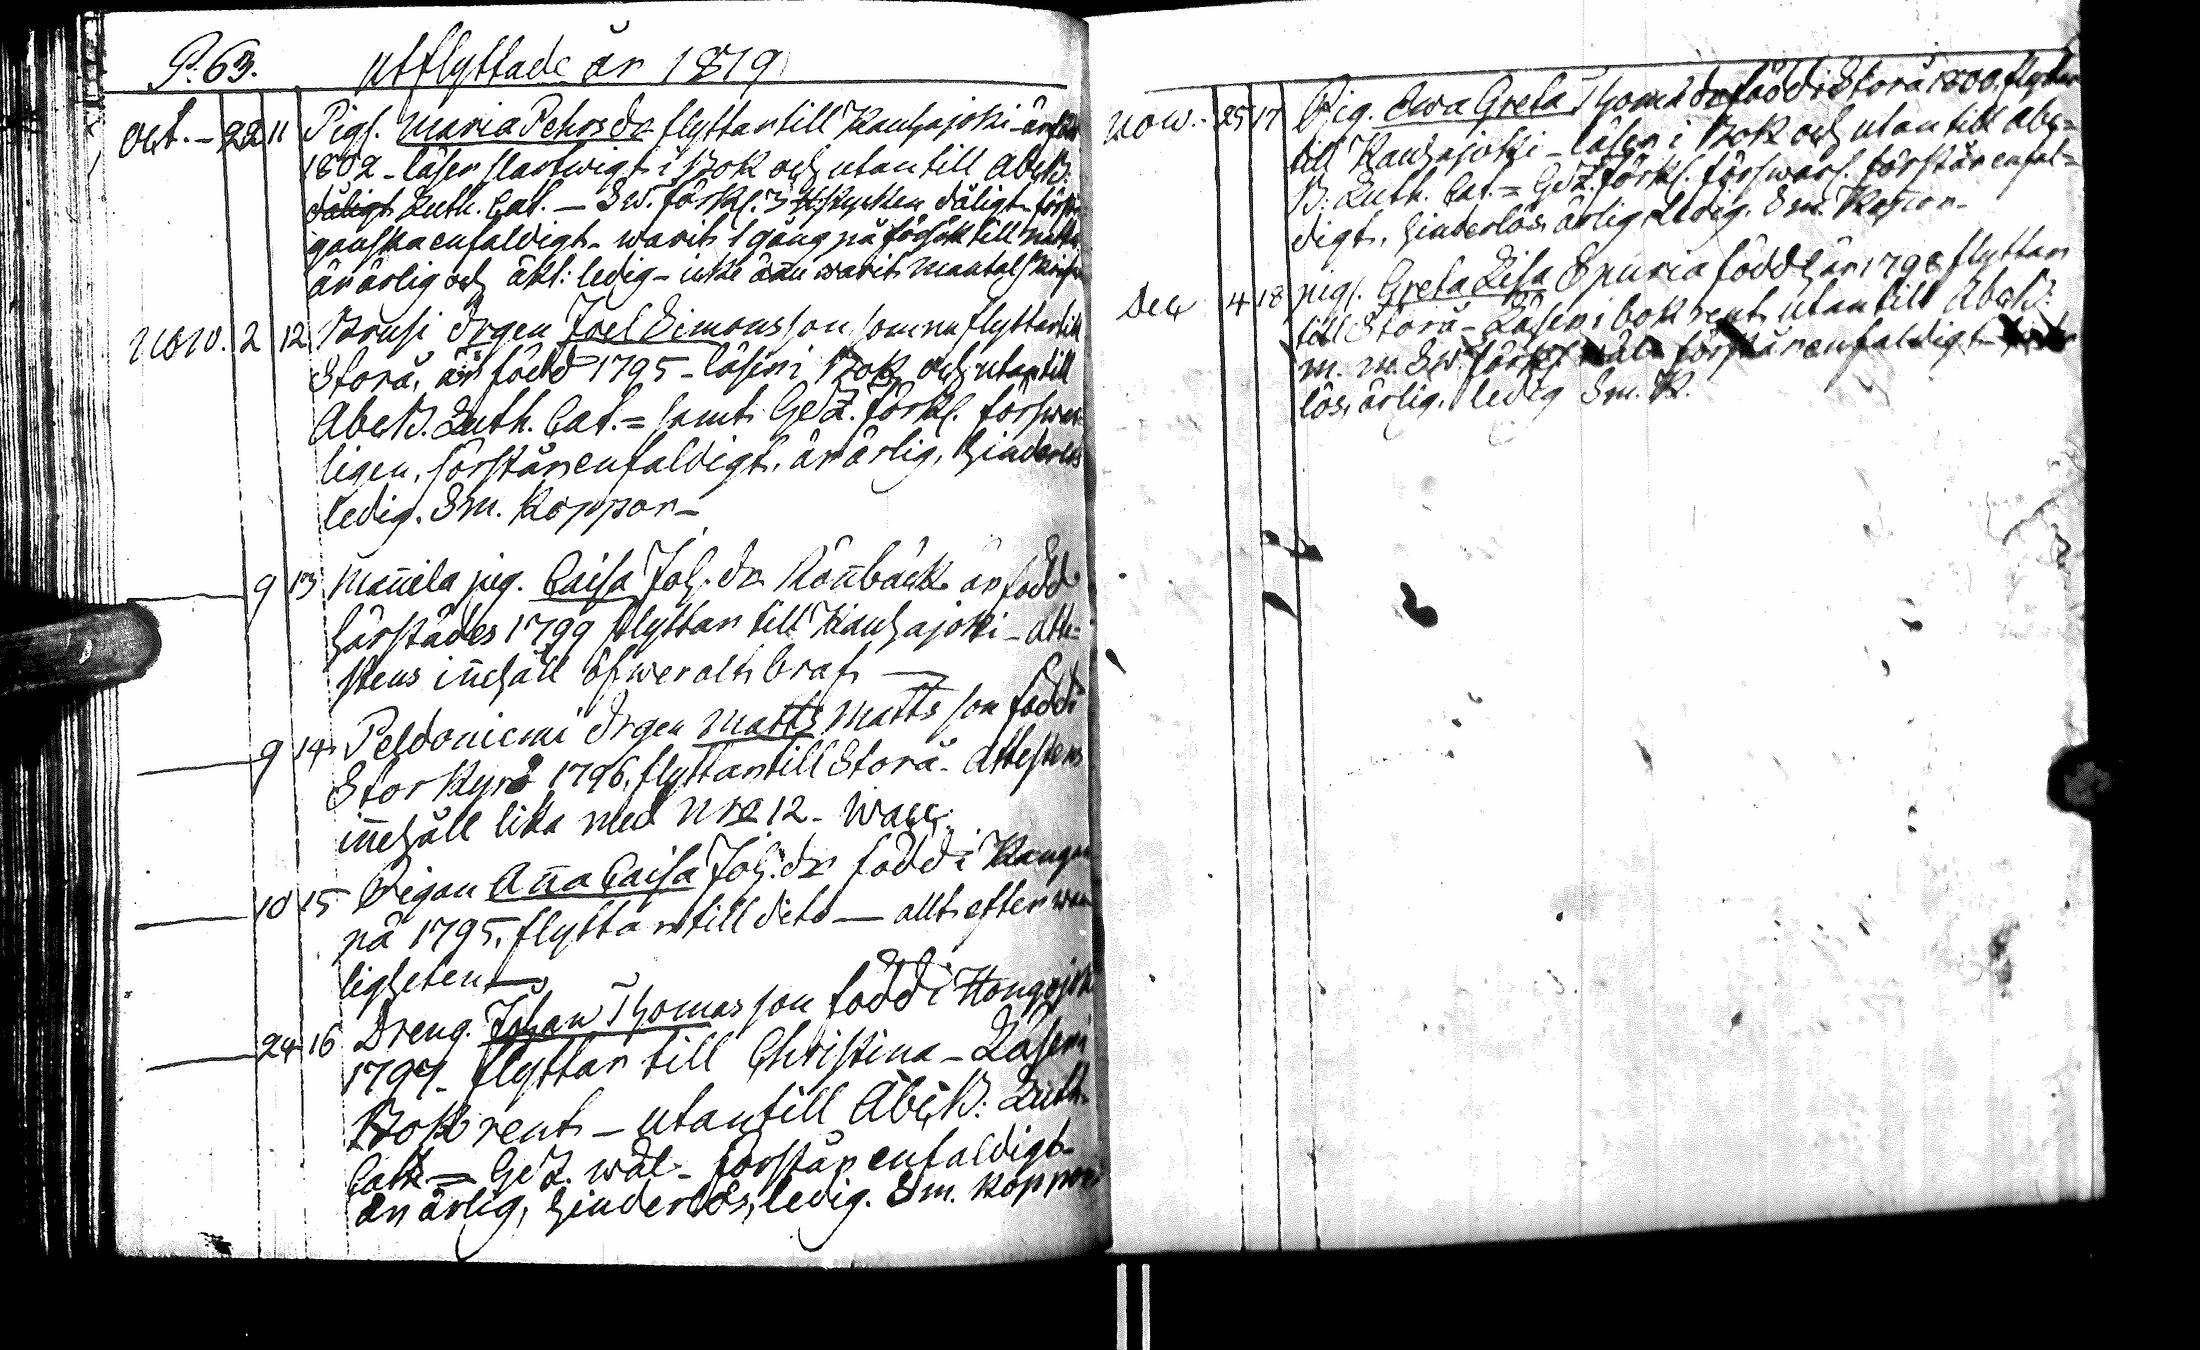 P. 63. utflyttade år 1819
Oct. - 22 11 Pigs. Maria Pehrs dr flyttar till Kauhajoki - är född
1802 - läser slartwigt i Bok och utantill AbcB.
dåligt Luth. Cat. - Sw. förkl. 3 stycken dåligt - förstår
ganska enfaldigt - warit 1 gång på försök till natt.
är ärlig och äkt: ledig - icke ännu warit Mantalskrifwen
Now. 2 12 Brusi drgen Joel Simonsson som nu flyttar till
Storå, är född 1795 - läser i Bok och utantill
AbcB. Luth. Cat. = samt GeZ. förkl. förswar-
ligen, förstår enfaldigt, är ärlig, hinderlös
ledig. Sm. Koppor -
9 13 Mañila pig. Caisa Joh. dr Röñbäck är född
härstädes 1799 flyttar till Kauhajoki - Atte-
stens iñehåll öfwer alt braf -
9 14 Peldoniemi drgen Matts Matts son född i
Storkyro 1796, flyttar till Storå - Attestens
iñehåll lika med Nro 12 - Wacc.
10 15 Pigan Aña Caisa Joh. dr född i Kangan
pä 1795, flyttar till dito - allt efter wan
ligheten -
24 16 Dreng. Johan Thomasson född i Hongojoki
1797 - flyttar till Christina - Läser i
Bok rent - utantill AbcB: Luth.
Cat. = GeZ. wäl - förstår enfaldigt
är ärlig, hinderlös, ledig. Sm. koppor
Now. - 25 17 Pig. Ewa Greta Thoms dr född i Storå 1800, flyttar
till Kauhajoki - läser i Bok och utantill Abc-
B. Luth. Cat. = GeZ. förkl. förswarl. förstår enfal-
digt, hinderlös, ärlig, ledig. Sm. Koppor -
Dec 4 18 pigs. Greta Lisa Spuria född år 1798 flyttar
till Storå - Läser i bok rent utantill AbcB:
m. m. Sw. förkl wäl förstår enfaldigt
lös, ärlig, ledig Sm. K.